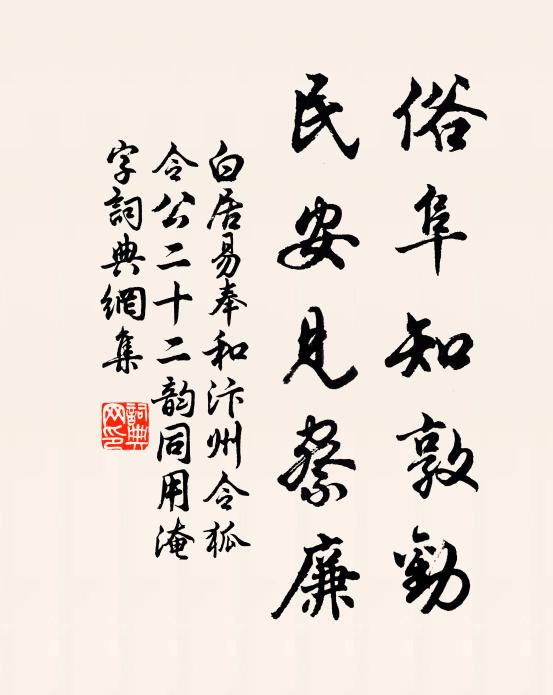 俗阜知敦勸
民安見察廉
白居易奉和汴州令狐
令公二十二韵同用淹
字詞典網集
詞典
网印